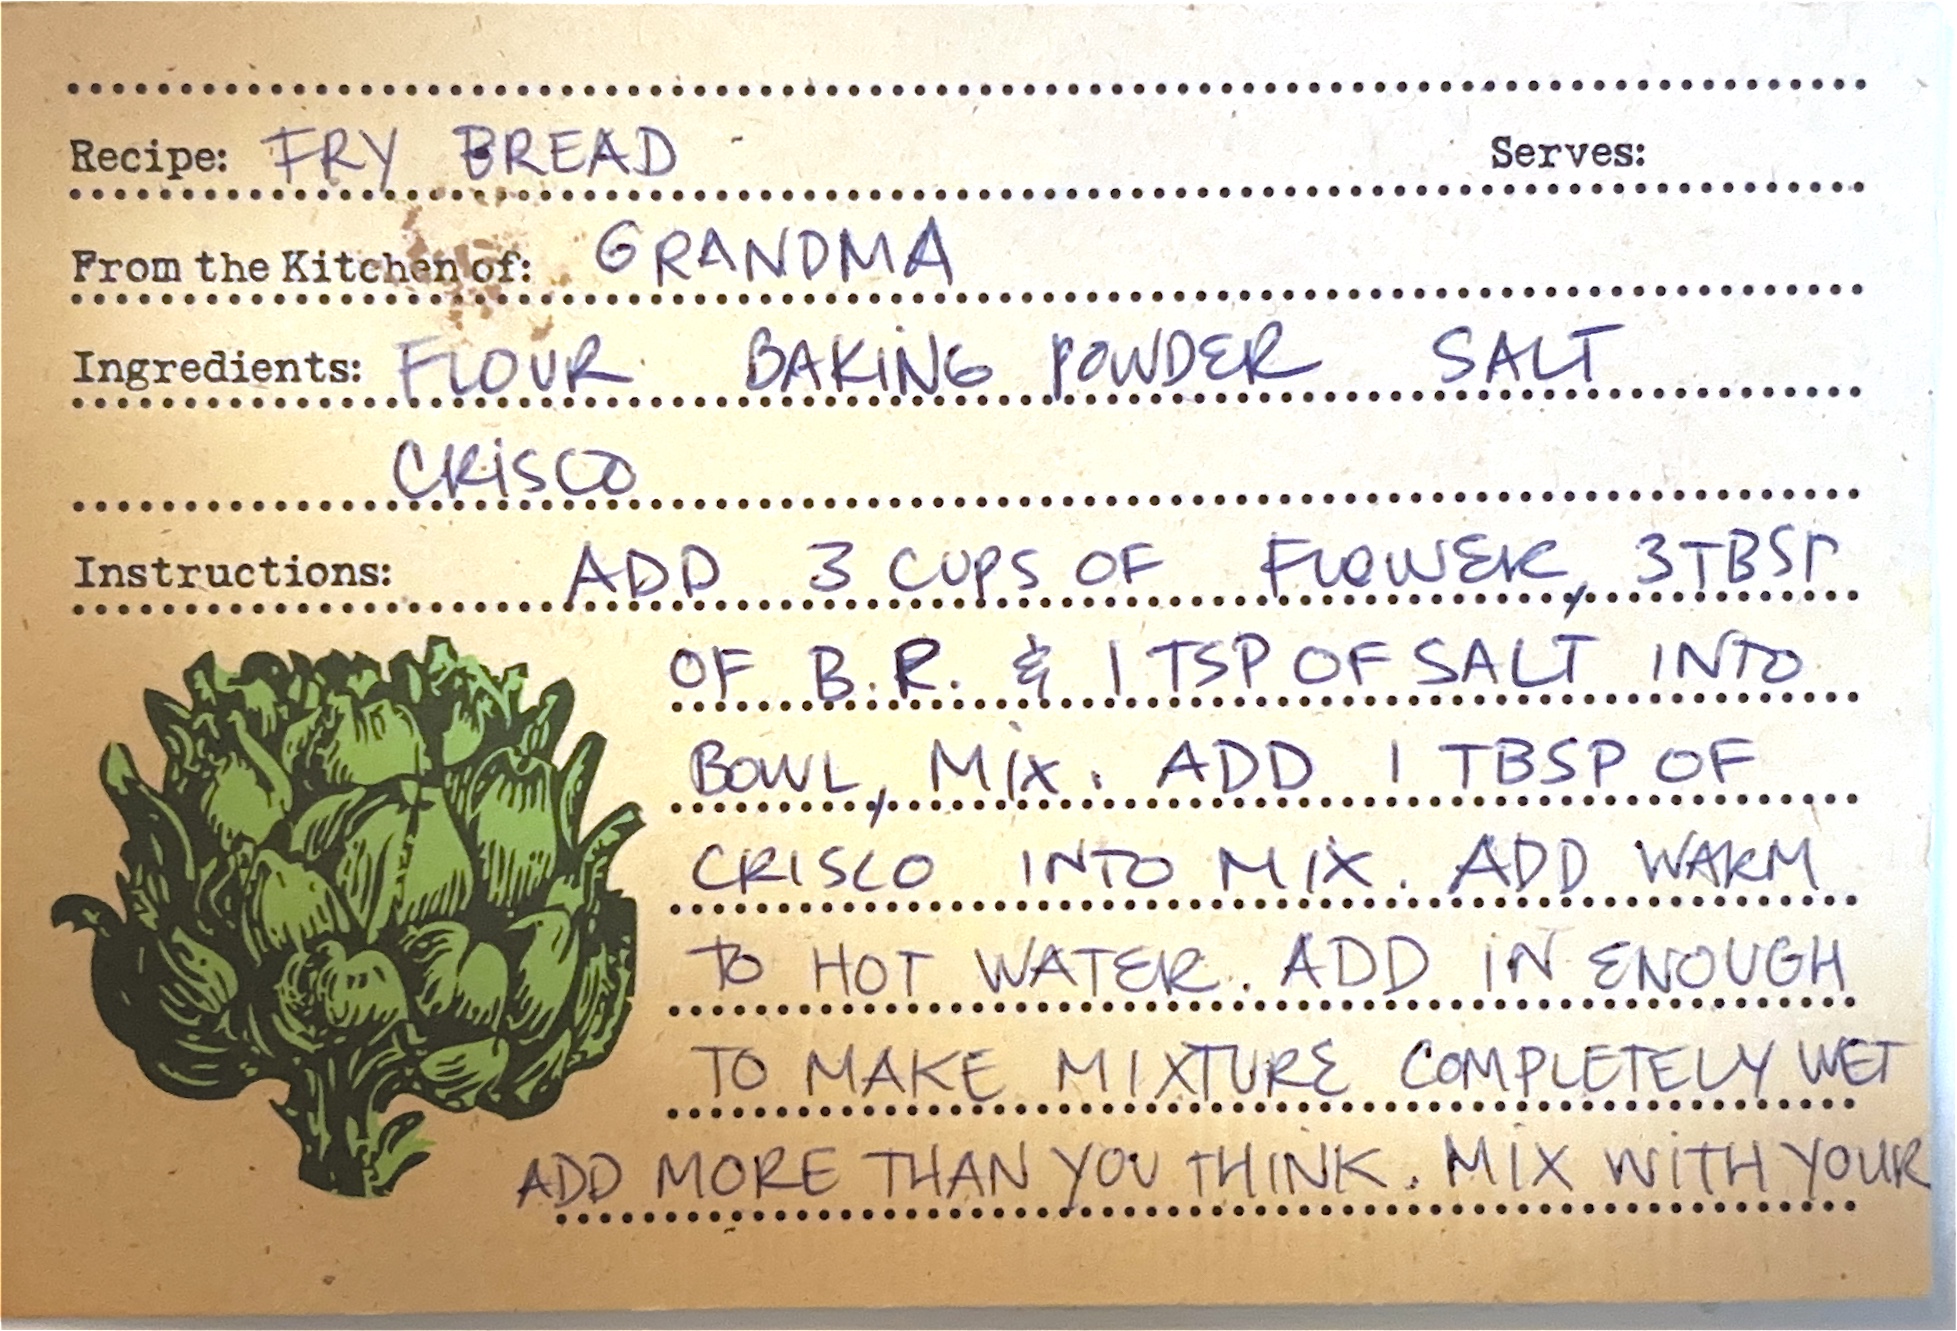 Recipe: FRY BREAD Serves:
From the Kitchen of: GRANDMA
Ingredients: FLOUR BAKING POWDER SALT
CRISCO
Instructions: ADD 3 CUPS OF FLOWER, 3 TBSP
OF B.R. & 1 TSP OF SALT INTO
BOWL, MIX. ADD 1 TBSP OF
CRISCO INTO MIX. ADD WARM
TO HOT WATER. ADD IN ENOUGH
TO MAKE MIXTURE COMPLETELY WET
ADD MORE THAN YOU THINK. MIX WITH YOUR